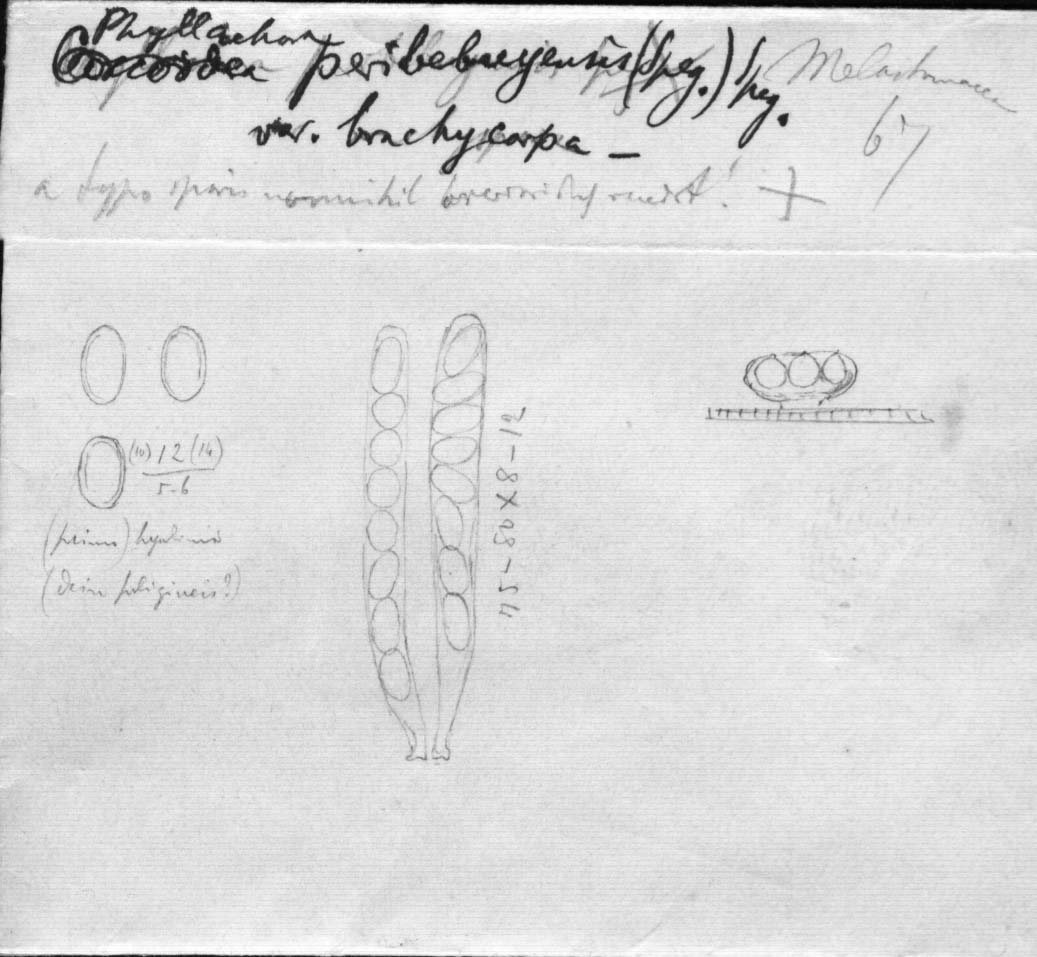 Phyllachora
Coccoidea peribebuyensis (Speg.) Speg.
Melastomacea
var. brachycarpa –
67
a typo sporis nonnihil brevioribus recedit! +
(10) 12 (14)
5-6
(primo) hyalinis
(dein fuligineis?)
75-80 X 8-12